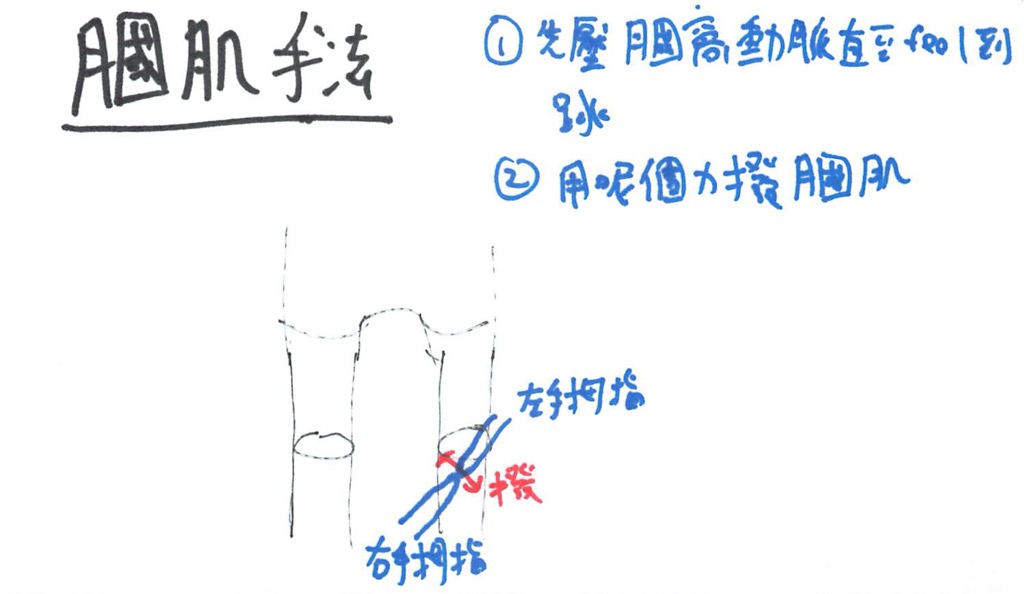 膕肌手法
① 先壓膕窩動脈直至feel到
跳
② 用呢個力撥膕肌
左手拇指
撥
右手拇指